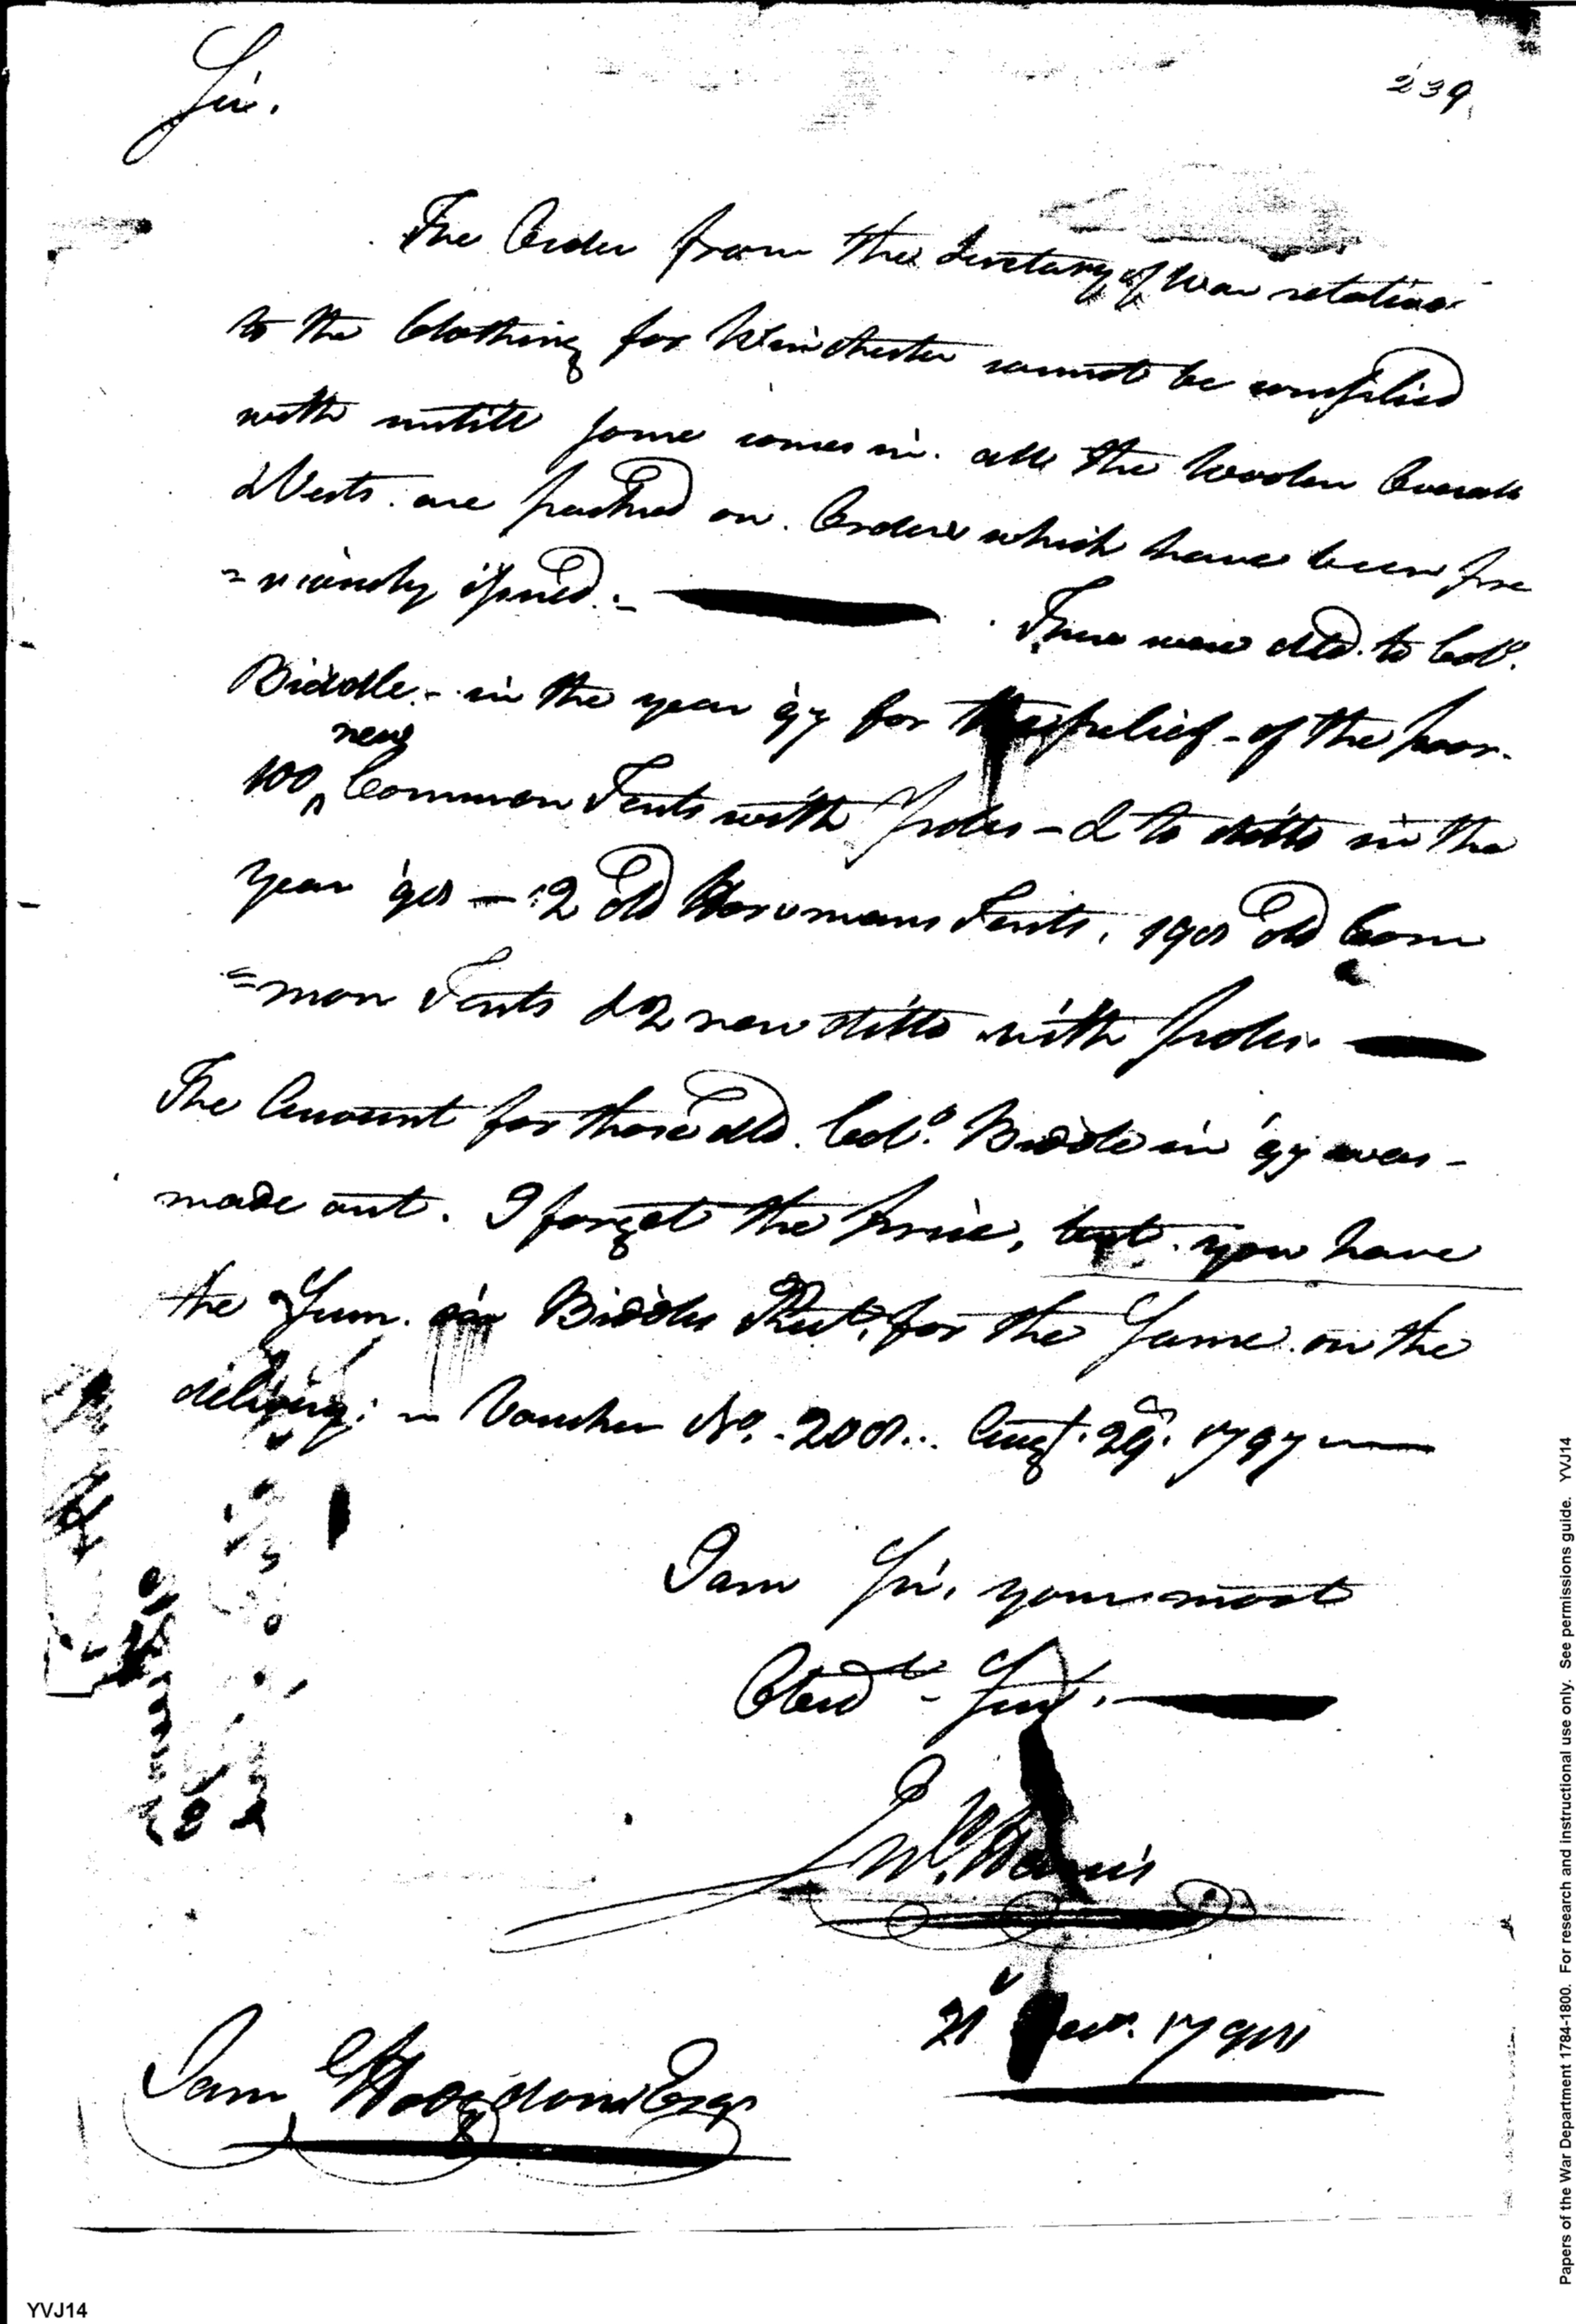 239
Sir.
The Order from the Secretary of War relative
to the Clothing for Winchester cannot be complied
with untill some comes in. all the Woolen Overalls
& Vests. are packed on. Orders which have been pre
=viously issued.:-
There were dld. to Colo.
Biddle.- in the year 97 for the relief - of the poor.
new
100 Common Tents with poles - & to ditto in the
year '98 - 2 old Horsmans Tents, 198 old Com
=mon Tents & 2 new ditto with poles.
The Amount for those dld. Colo. Biddle in '97 was -
made out. I forget the price, but you have
the Sum. in Biddles Rect. for the same on the
delivery; Voucher No. 208.. Augt. 29. 1797
I am Sir, your most
Obedt. Servt.
Jno. Harris
21 1798
Saml. Hodgdon Esqr
YVJ14
Papers of the War Department 1784-1800. For research and instructional use only. See permissions guide. YVJ14